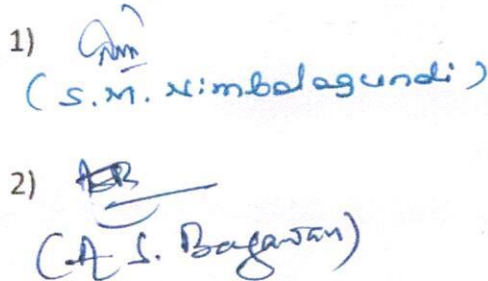 1)
(S.M. Nimbalagundi)
2)
(A S. Bagawan)